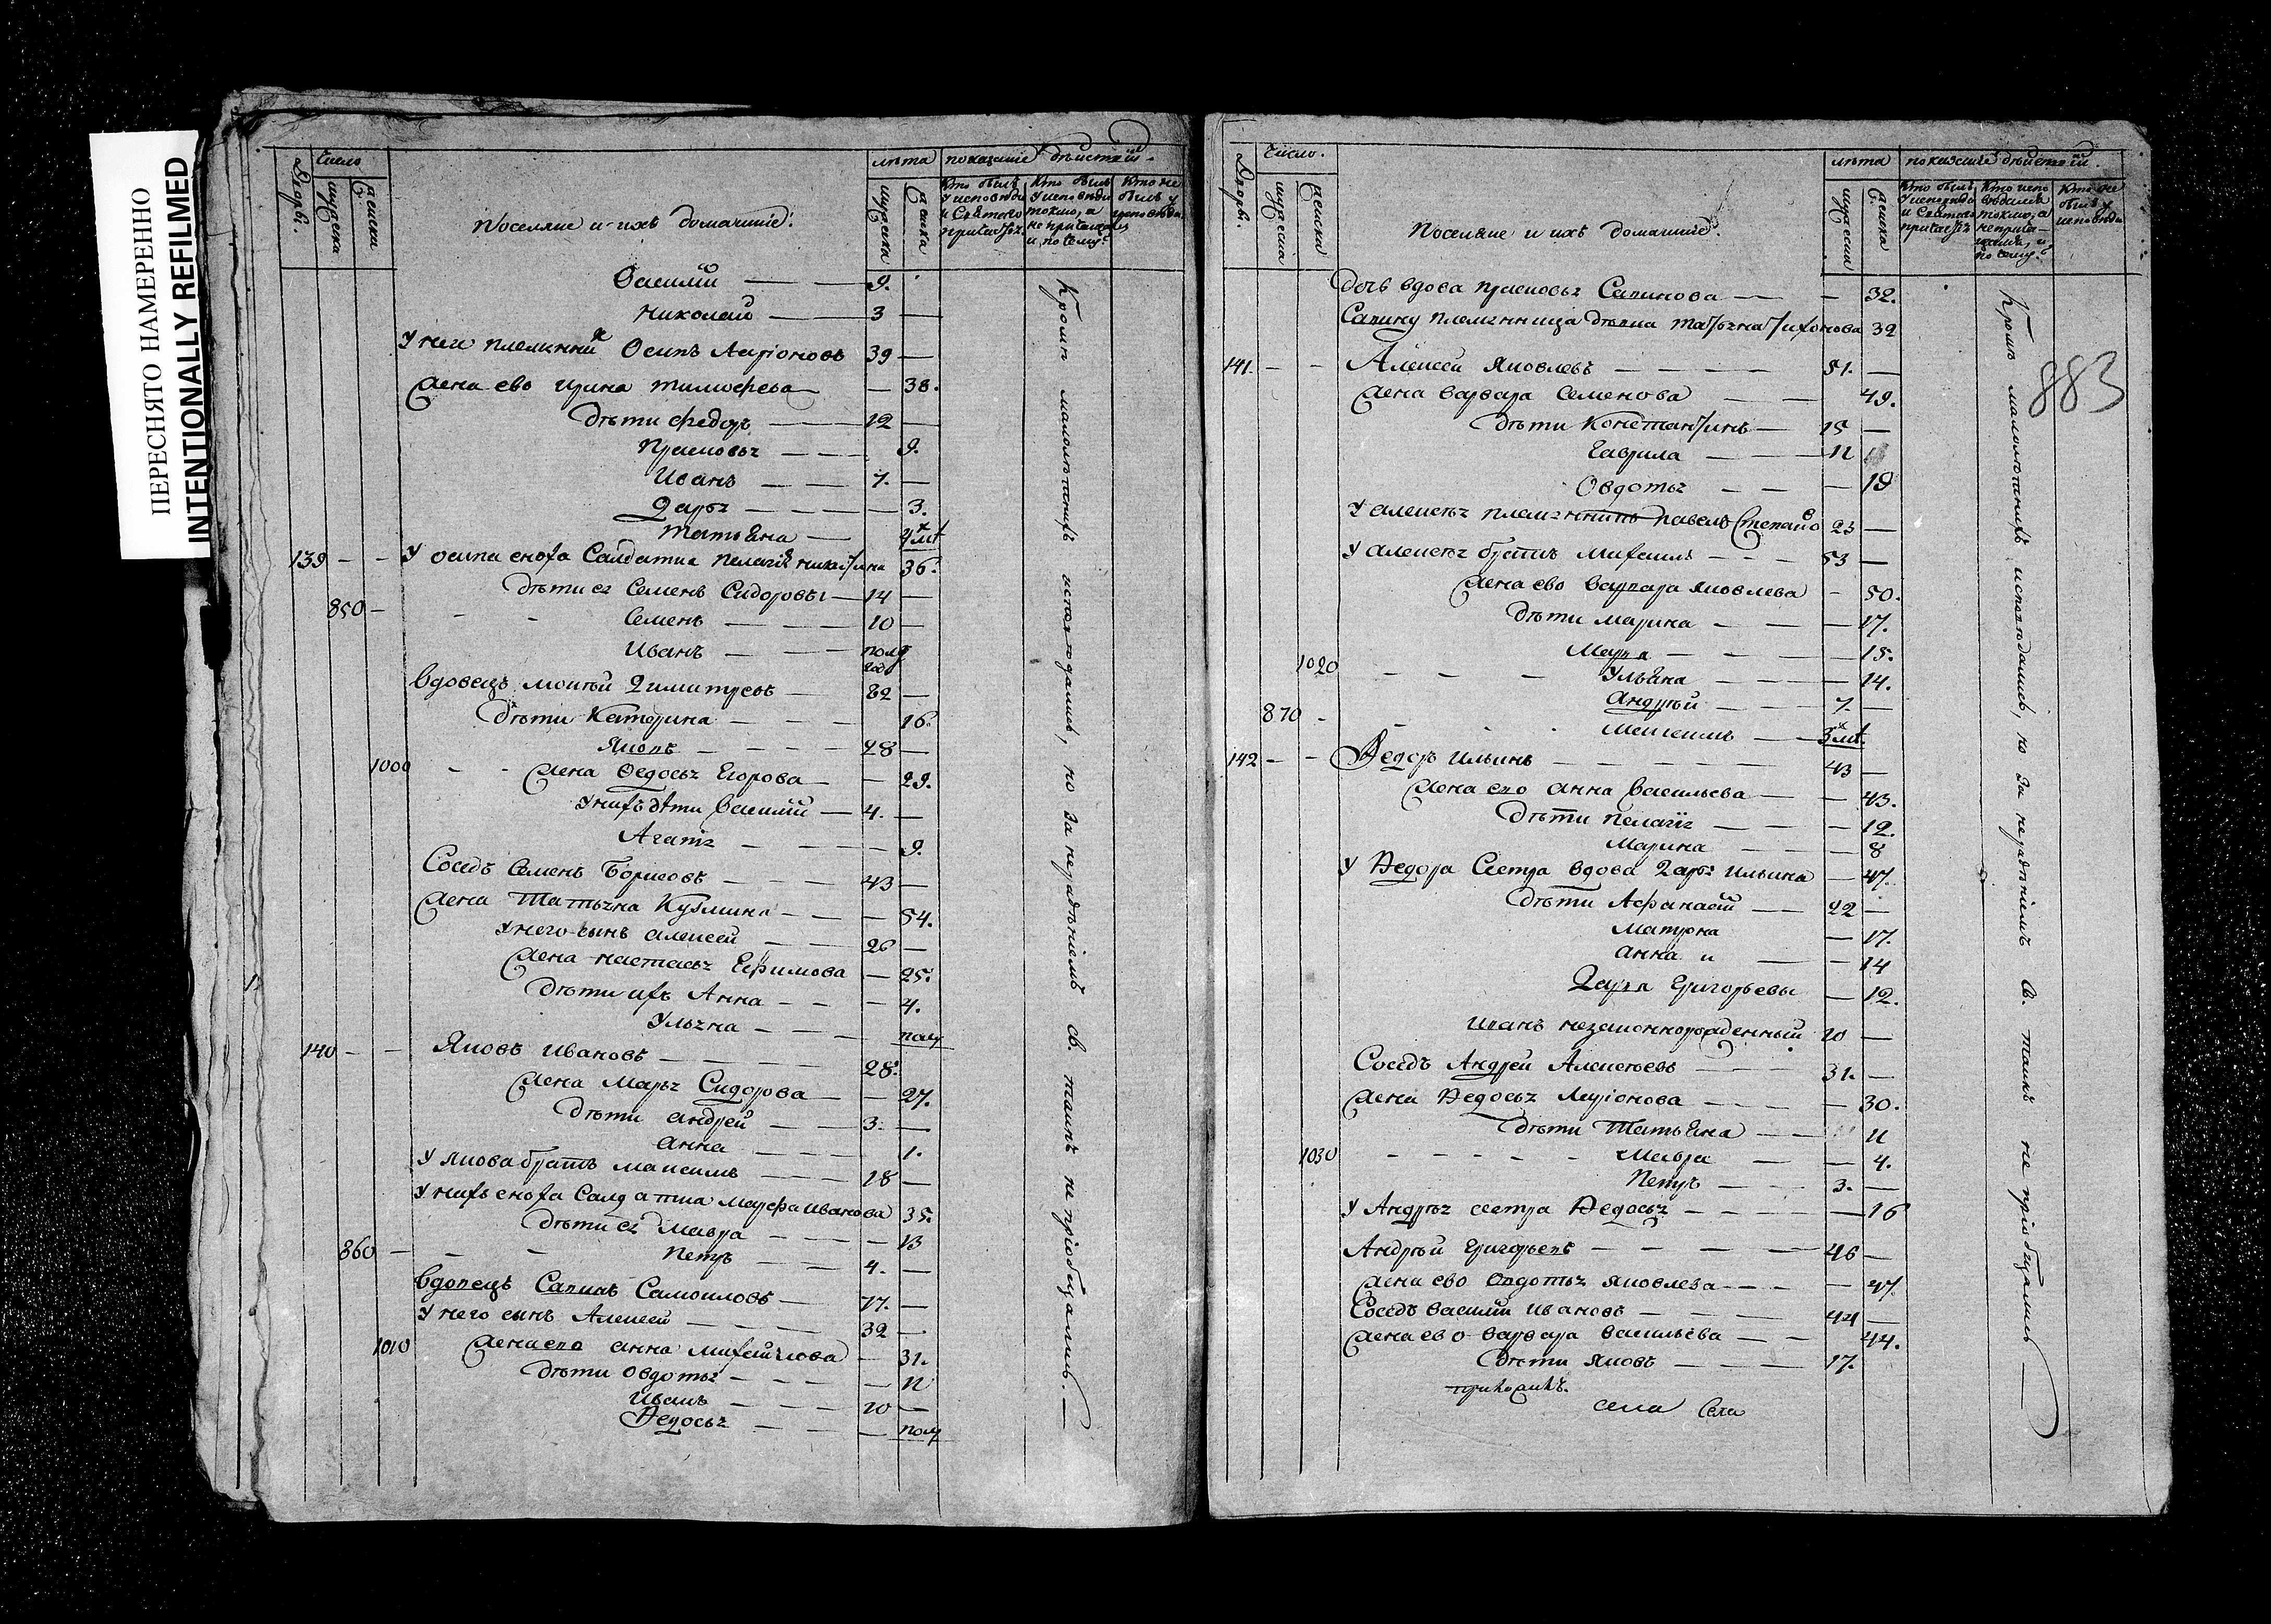 ПЕРЕСНЯТО НАМЕРЕННО
INTENTIONALLY REFILMED
Дворы
Число
мужеска
женска
Поселяне и ихъ домашнiе
лѣта
мужеска
женска
показанiе дѣйствiй
Кто былъ у исповѣди и Святаго причастiя
Кто былъ у исповѣди токмо, а не причащался и по чему?
Кто не былъ у исповѣди
Василiй — 9.
Николай — 3 —
У нея племянникъ Осипъ Ларiоновъ 39 —
Жена ево Ирина Тимофеева — 38.
Дѣти Федоръ — 12 —
Прасковья — 9.
Иванъ — 7. —
Дарья — 3.
Татьяна —
139 - - У осипа сноха Салдатка Пелагiя Никитина 36.
Дѣти ея Семенъ Сидоровы — 14 —
850 - Семенъ — 10 —
Иванъ — полу года
Вдовецъ Мокѣй Димитревъ — 82 —
Дѣти Катерина — 16.
Яковъ — 28 —
1000 - - Жена Федосья Егорова — 29.
У нихъ дѣти Василiй — 4. —
Агапiя — 9.
Соседъ Семенъ Борисовъ — 43 —
Жена Татьяна Кузмина — 54.
У него сынъ Алексей — 26 —
Жена Настасья Ефимова — 25.
Дѣти ихъ Анна — 4.
Ульяна — полу
140 - - Яковъ Ивановъ — 28.
Жена Марья Сидорова — 27.
Дѣти Андрей — 3. —
Анна — 1.
У Якова братъ Максимъ — 18 —
У нихъ сноха Салдатка Марфа Иванова 35.
Дѣти ея Мавра — 13
860 - Петръ — 4. —
Вдовецъ Савинъ Самоиловъ — 77. —
У него сынъ Алексей — 32 —
1010 Жена ево Анна Михайлова — 31.
Дѣти Овдотья — 11
Иванъ — 10 —
Федосья — полу
Кромѣ малолѣтнихъ исповѣдались, но за нерадѣнiемъ св. таинъ не прiобщались. —
Дворы
Число.
мужеска
женска
Поселяне и ихъ домашнiе
лѣта
мужеска
женска
показанiе дѣйствiй.
Кто былъ у исповѣди и Святаго причастiя
Кто исповѣдался токмо, а не причащался, и по чему?
Кто не былъ у исповѣди
883
Дочь вдова Прасковья Савинова — 32.
Савину племянница дѣвка Татьяна Тихонова 32
141. - - Алексей Яковлевъ — 51. —
Жена Варвара Семенова — 49.
Дѣти Константинъ — 15 —
Гаврила — 11
Овдотья — 19
У Алексея племянникъ Павелъ Степановъ 23 —
У Алексея братъ Михаилъ — 53 —
Жена ево Варвара Яковлева — 50.
Дѣти Марина — 17.
Марѳа — 15.
1020 - - - Ульяна — 14.
Андрѣй — 7. —
870 - - Михаилъ —
142 - - Федоръ Ильинъ — 43 —
Жена ево Анна Васильева — 43.
Дѣти Пелагiя — 12.
Марина — 8
У Федора Сестра вдова Дарья Ильина — 47.
Дѣти Афанасiй — 22 —
Матрона — 17.
Анна и — 14
Дарья Григорьевы — 12.
Иванъ незаконнорожденный 10 —
Соседъ Андрей Алексеевъ — 31. —
Жена Федосья Ларiонова — 30.
Дѣти Татьяна — 11
1030 - - - - - Мавра — 4.
Петръ — 3. —
У Андрея сестра Федосья — 16
Андрѣй Григорьевъ — 46 —
Жена ево Овдотья Яковлева — 47.
Соседъ Василiй Ивановъ — 44 —
Жена ево Варвара Васильева — 44.
Дѣти Яковъ — 17.
села Села
Кромѣ малолѣтнихъ исповѣдались, но за нерадѣнiемъ св. таинъ не прiобщались —